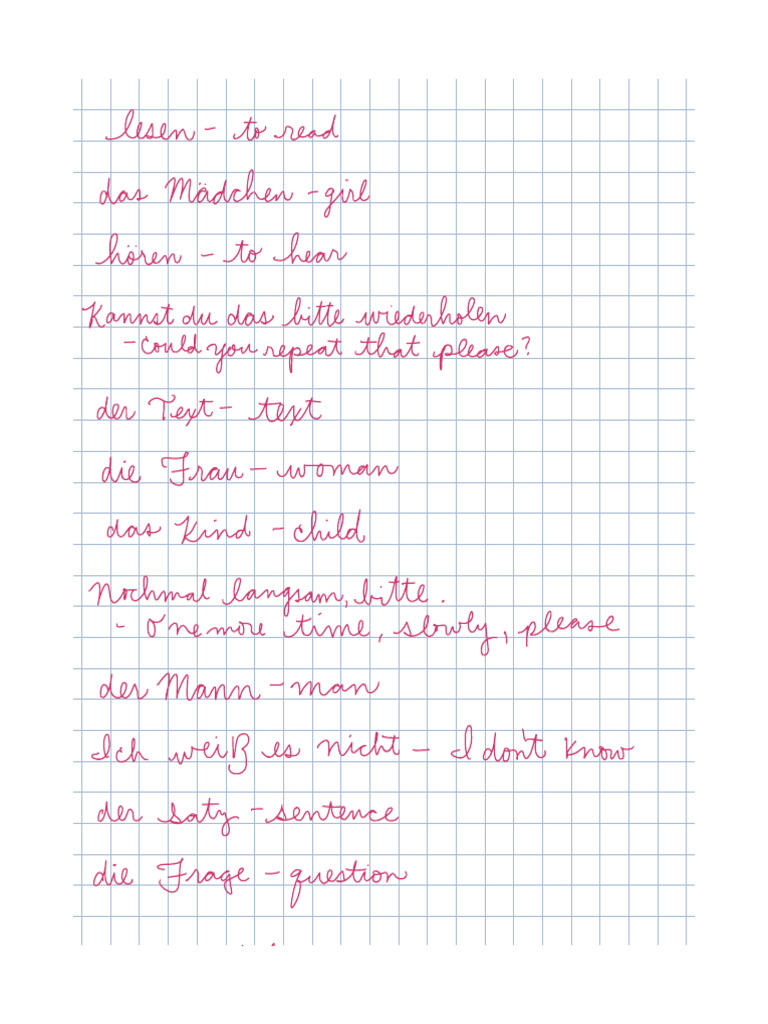 lesen - to read
das Mädchen - girl
hören - to hear
Kannst du das bitte wiederholen
- could you repeat that please?
der Text - text
die Frau - woman
das Kind - child
Nochmal langsam, bitte.
- One more time, slowly, please
der Mann - man
Ich weiß es nicht - I don't know
der Satz - sentence
die Frage - question